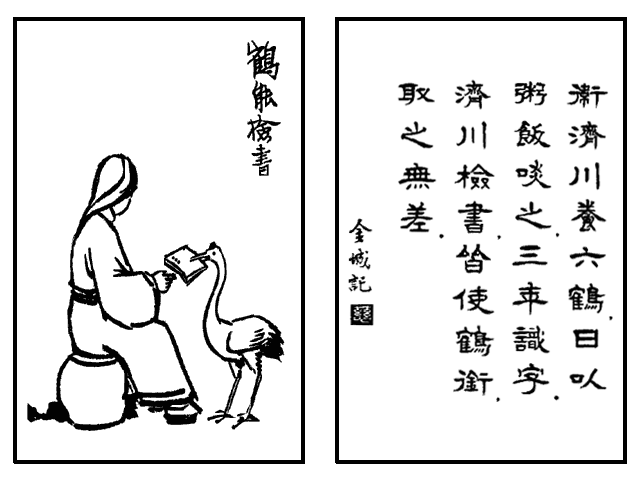 鶴能檢書
衛濟川養六鶴.日以
粥飯啖之.三年識字.
濟川檢書.皆使鶴銜.
取之無差.
金城記